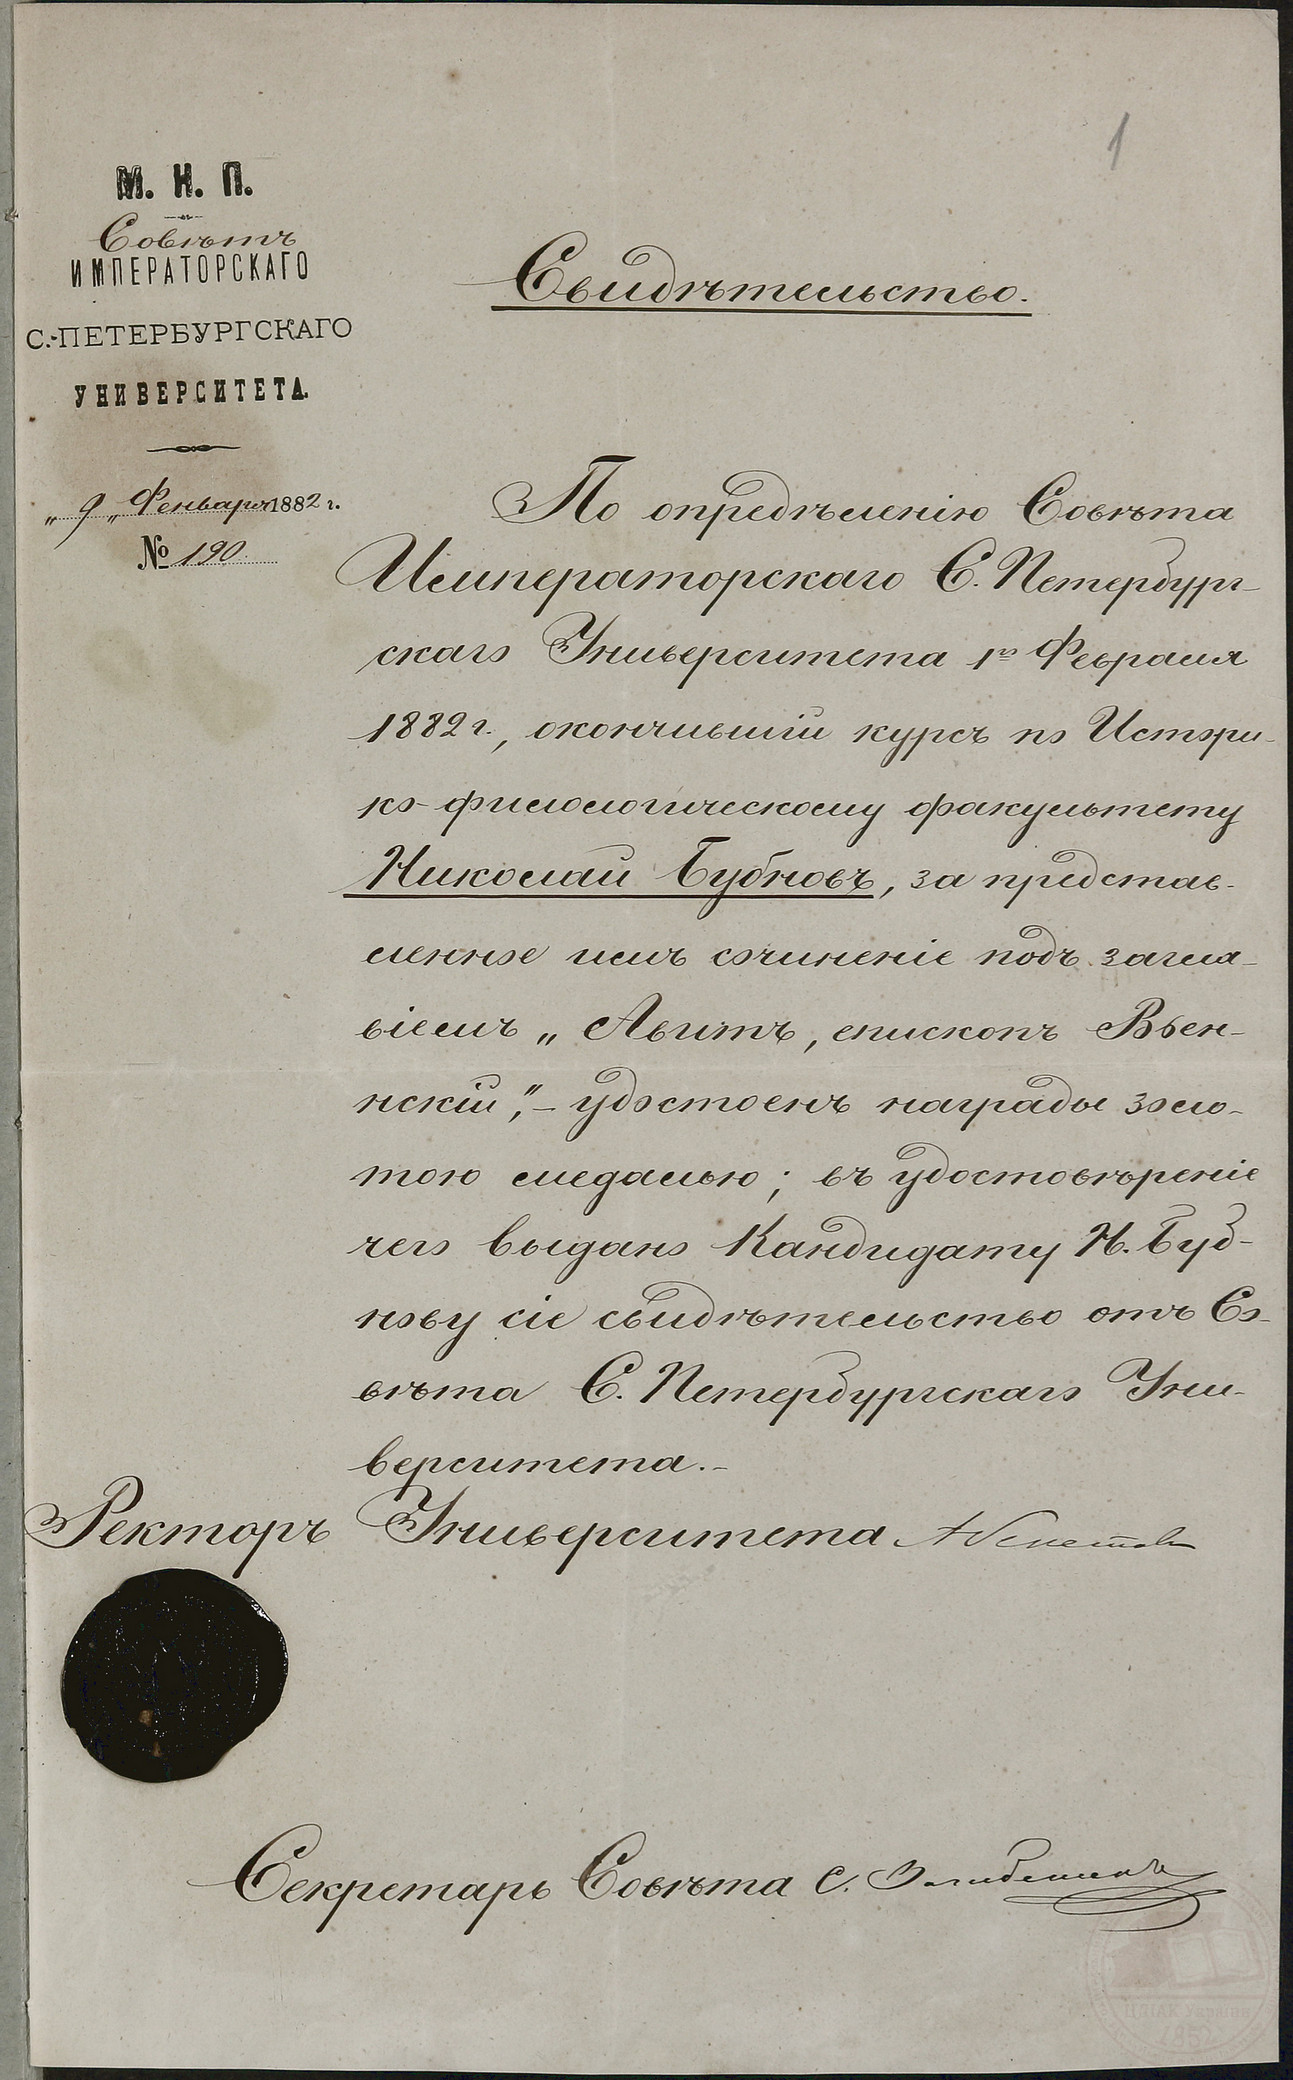 1
М. Н. П.
Совѣтъ
ИМПЕРАТОРСКАГО
С.-ПЕТЕРБУРГСКАГО
УНИВЕРСИТЕТА.
„ 9 „ 1882 г.
№ 190.
Свидѣтельство.
По опредѣленію Совѣта
Императорскаго С. Петербург-
скаго Университета 1го Февраля
1882 г., окончившій курсъ по Истори-
ко-филологическому факультету
Николай Бубновъ, за представ-
ленное имъ сочиненіе подъ загла-
віемъ „Авитъ, епископъ Вьен-
нскій“, – удостоенъ награды золо-
тою медалью; въ удостовѣреніе
чего выдано Кандидату Н. Буб-
нову сіе свидѣтельство отъ Со-
вѣта С. Петербургскаго Уни-
верситета. –
Ректоръ Университета
Секретарь Совѣта С.
ЦДІАК України
1852